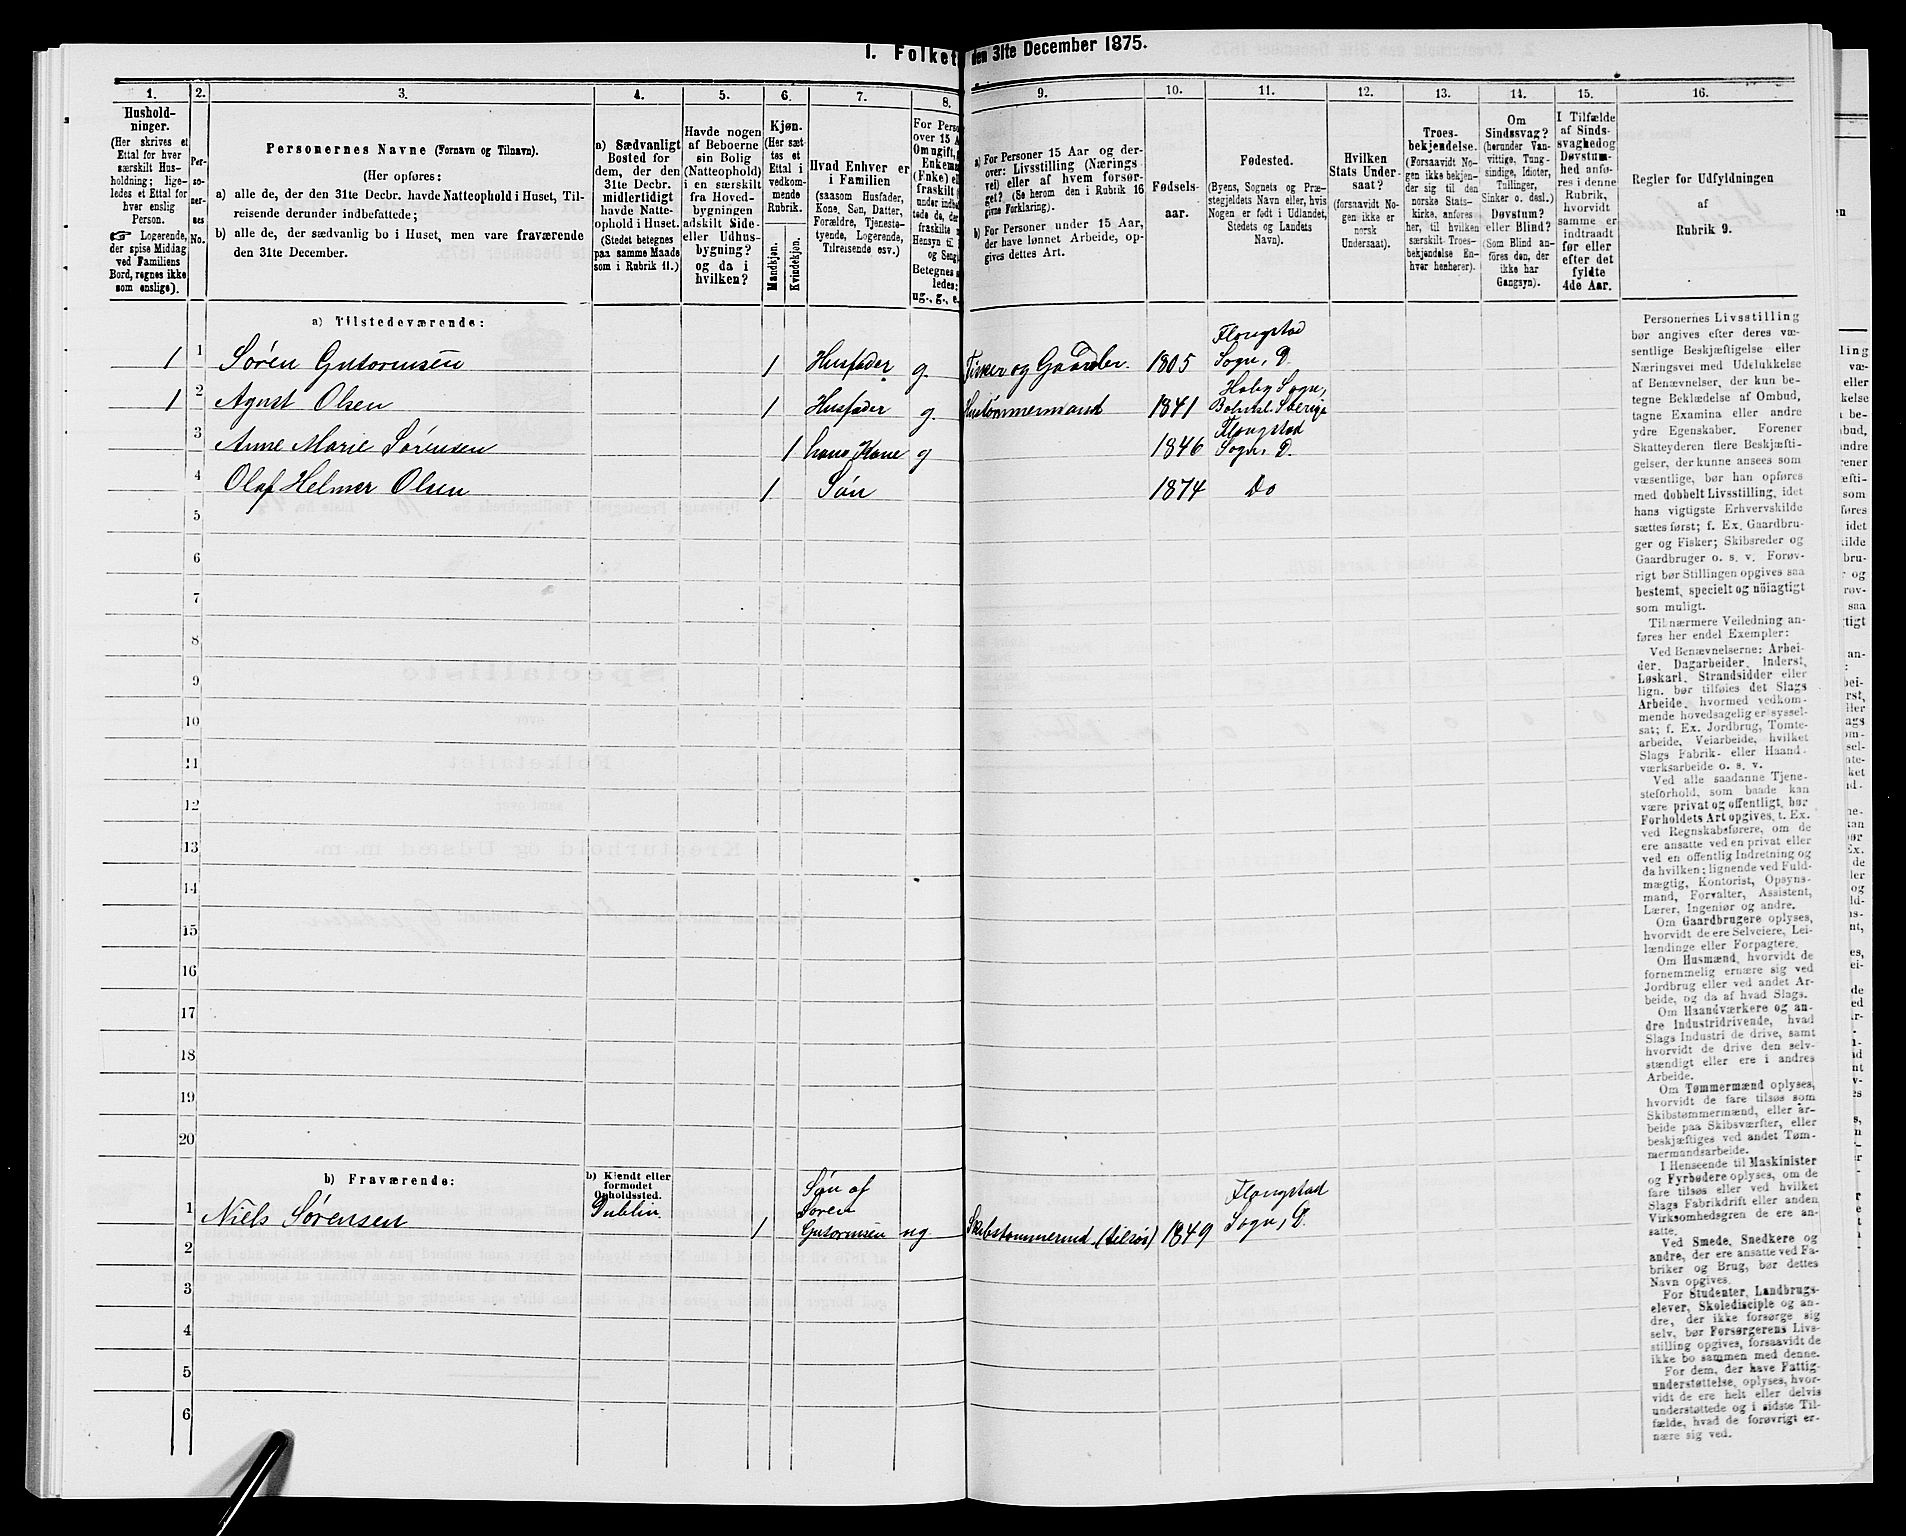 1. Folket den 31te December 1875.
1. 2. 3. 4. 5. 6. 7. 8. 9. 10. 11. 12. 13. 14. 15. 16.
Hushold-
ninger.
(Her skrives et
Ettal for hver
særskilt Hus-
holdning; lige-
ledes et Ettal for
hver enslig
Person.
☞ Logerende,
der spise Middag
ved Familiens
Bord, regnes ikke
som enslige).
Per-
so-
ner-
nes
No.
Personernes Navne (Fornavn og Tilnavn).
(Her opføres:
a) alle de, der den 31te Decbr. havde Natteophold i Huset, Til-
reisende derunder indbefattede;
b) alle de, der sædvanlig bo i Huset, men vare fraværende
den 31te December.
a) Sædvanligt
Bosted for
dem, der den
31te Decbr.
midlertidigt
havde Natte-
ophold i Huset.
(Stedet betegnes
paa samme Maade
som i Rubrik 11.)
Havde nogen
af Beboerne
sin Bolig
(Natteophold)
i en særskilt
fra Hoved-
bygningen
adskilt Side-
eller Udhus-
bygning?
og da i
hvilken?
Kjøn.
(Her sæt-
tes et
Ettal i
vedkom-
mende
Rubrik.
Mandkjøn.
Kvindekjøn.
Hvad Enhver er
i Familien
(saasom Husfader,
Kone, Søn, Datter,
Forældre, Tjeneste-
tyende, Logerende,
Tilreisende osv.)
For Perso
over 15 A
Om ugift, g
Enkem
(Enke) e
fraskilt
under indb
tede de, de
fraskilte
Hensyn til
og Seng
Betegnes
ledes:
ug., g., e.
a) For Personer 15 Aar og der-
over: Livsstilling (Nærings
vei) eller af hvem forsør-
get? (Se herom den i Rubrik 16
givne Forklaring).
b) For Personer under 15 Aar,
der have lønnet Arbeide, op-
gives dettes Art.
Fødsels-
aar.
Fødested.
(Byens, Sognets og Præ-
stegjeldets Navn eller, hvis
Nogen er født i Udlandet,
Stedets og Landets
Navn).
Hvilken
Stats Under-
saat?
(forsaavidt No-
gen ikke er
norsk
Undersaat).
Troes-
bekjendelse.
(Forsaavidt No-
gen ikke bekjen-
der sig til den
norske Stats-
kirke, anføres
her, til hvilken
særskilt Troes-
bekjendelse En-
hver henhører).
Om
Sindssvag?
(herunder Van-
vittige, Tung-
sindige, Idioter,
Tullinger,
Sinker o. desl.)
Døvstum?
eller Blind?
(Som Blind an-
føres den, der
ikke har
Gangsyn).
I Tilfælde
af Sinds-
svaghed og
Døvstum-
hed anfø-
res i denne
Rubrik,
hvorvidt
samme er
indtraadt
før eller
efter det
fyldte
4de Aar.
Regler for Udfyldningen
af
Rubrik 9.
a) Tilstedeværende:
1 1 Søren Gutormsen 1 Husfader g. Fisker og Gaardbr. 1805 Flougstad Sogn, D.
1 2 Agust Olsen 1 Husfader g. Hustømmermand 1841 Haby Sogn, Bohusl. Sverige
3 Anne Marie Sørensen 1 hans Kone g 1846 Flougstad Sogn, D.
4 Olaf Helmer Olsen 1 Søn 1874 Do
5
6
7
8
9
10
11
12
13
14
15
16
17
18
19
20
b) Fraværende:
b) Kjendt eller
formodet
Opholdssted.
1 Niels Sørensen Dublin 1 Søn af Søren Gutormsen ug. Skibstømmermd. (tilsøs) 1849 Flougstad Sogn, D.
2
3
4
5
6
Personernes Livsstilling
bør angives efter deres væ-
sentlige Beskjæftigelse eller
Næringsvei med Udelukkelse
af Benævnelser, der kun be-
tegne Beklædelse af Ombud,
tagne Examina eller andre
ydre Egenskaber. Forener
Skatteyderen flere Beskjæfti-
gelser, der kunne ansees som
væsentlige, bør han opføres
med dobbelt Livsstilling, idet
hans vigtigste Erhvervskilde
sættes først; f. Ex. Gaardbru-
ger og Fisker; Skibsreder og
Gaardbruger o. s. v. Forøv-
rigt bør Stillingen opgives saa
bestemt, specielt og nöiagtigt
som muligt.
Til nærmere Veiledning an-
føres her endel Exempler:
Ved Benævnelserne: Arbei-
der, Dagarbeider, Inderst,
Løskarl, Strandsidder eller
lign. bør tilføies det Slags
Arbeide, hvormed vedkom-
mende hovedsagelig er syssel-
sat; f. Ex. Jordbrug, Tomte-
arbeide, Veiarbeide, hvilket
Slags Fabrik- eller Haand-
værksarbeide o. s. v.
Ved alle saadanne Tjene-
steforhold, som baade kan
være privat og offentligt, bør
Forholdets Art opgives, t. Ex.
ved Regnskabsførere, om de
ere ansatte ved en privat eller
ved en offentlig Indretning og
da hvilken; lignende ved Fuld-
mægtig, Kontorist, Opsyns-
mand, Forvalter, Assistent,
Lærer, Ingeniør og andre.
Om Gaardbrugere oplyses,
hvorvidt de ere Selveiere, Lei-
lændinge eller Forpagtere.
Om Husmænd, hvorvidt de
fornemmelig ernære sig ved
Jordbrug eller ved andet Ar-
beide, og da af hvad Slags.
Om Haandværkere og an-
dre Industridrivende, hvad
Slags Industri de drive, samt
hvorvidt de drive den selv-
stændigt eller ere i andres
Arbeide.
Om Tømmermænd oplyses,
hvorvidt de fare tilsøs som
Skibstømmermænd, eller ar-
beide paa Skibsværfter, eller
beskjæftiges ved andet Tøm-
mermandsarbeide.
I Henseende til Maskinister
og Fyrbødere oplyses, om de
fare tilsøs eller ved hvilket
Slags Fabrikdrift eller anden
Virksomhedsgren de ere an-
satte.
Ved Smede, Snedkere og
andre, der ere ansatte ved Fa-
briker og Brug, bør dettes
Navn opgives.
For Studenter, Landbrugs-
elever, Skoledisciple og an-
dre, der ikke forsørge sig
selv, bør Forsørgerens Livs-
stilling opgives, forsaavidt de
ikke bo sammen med denne.
For dem, der have Fattig-
understøttelse, oplyses, hvor-
vidt de ere helt eller delvis
understøttede og i sidste Til-
fælde, hvad de forøvrigt er-
nære sig ved.